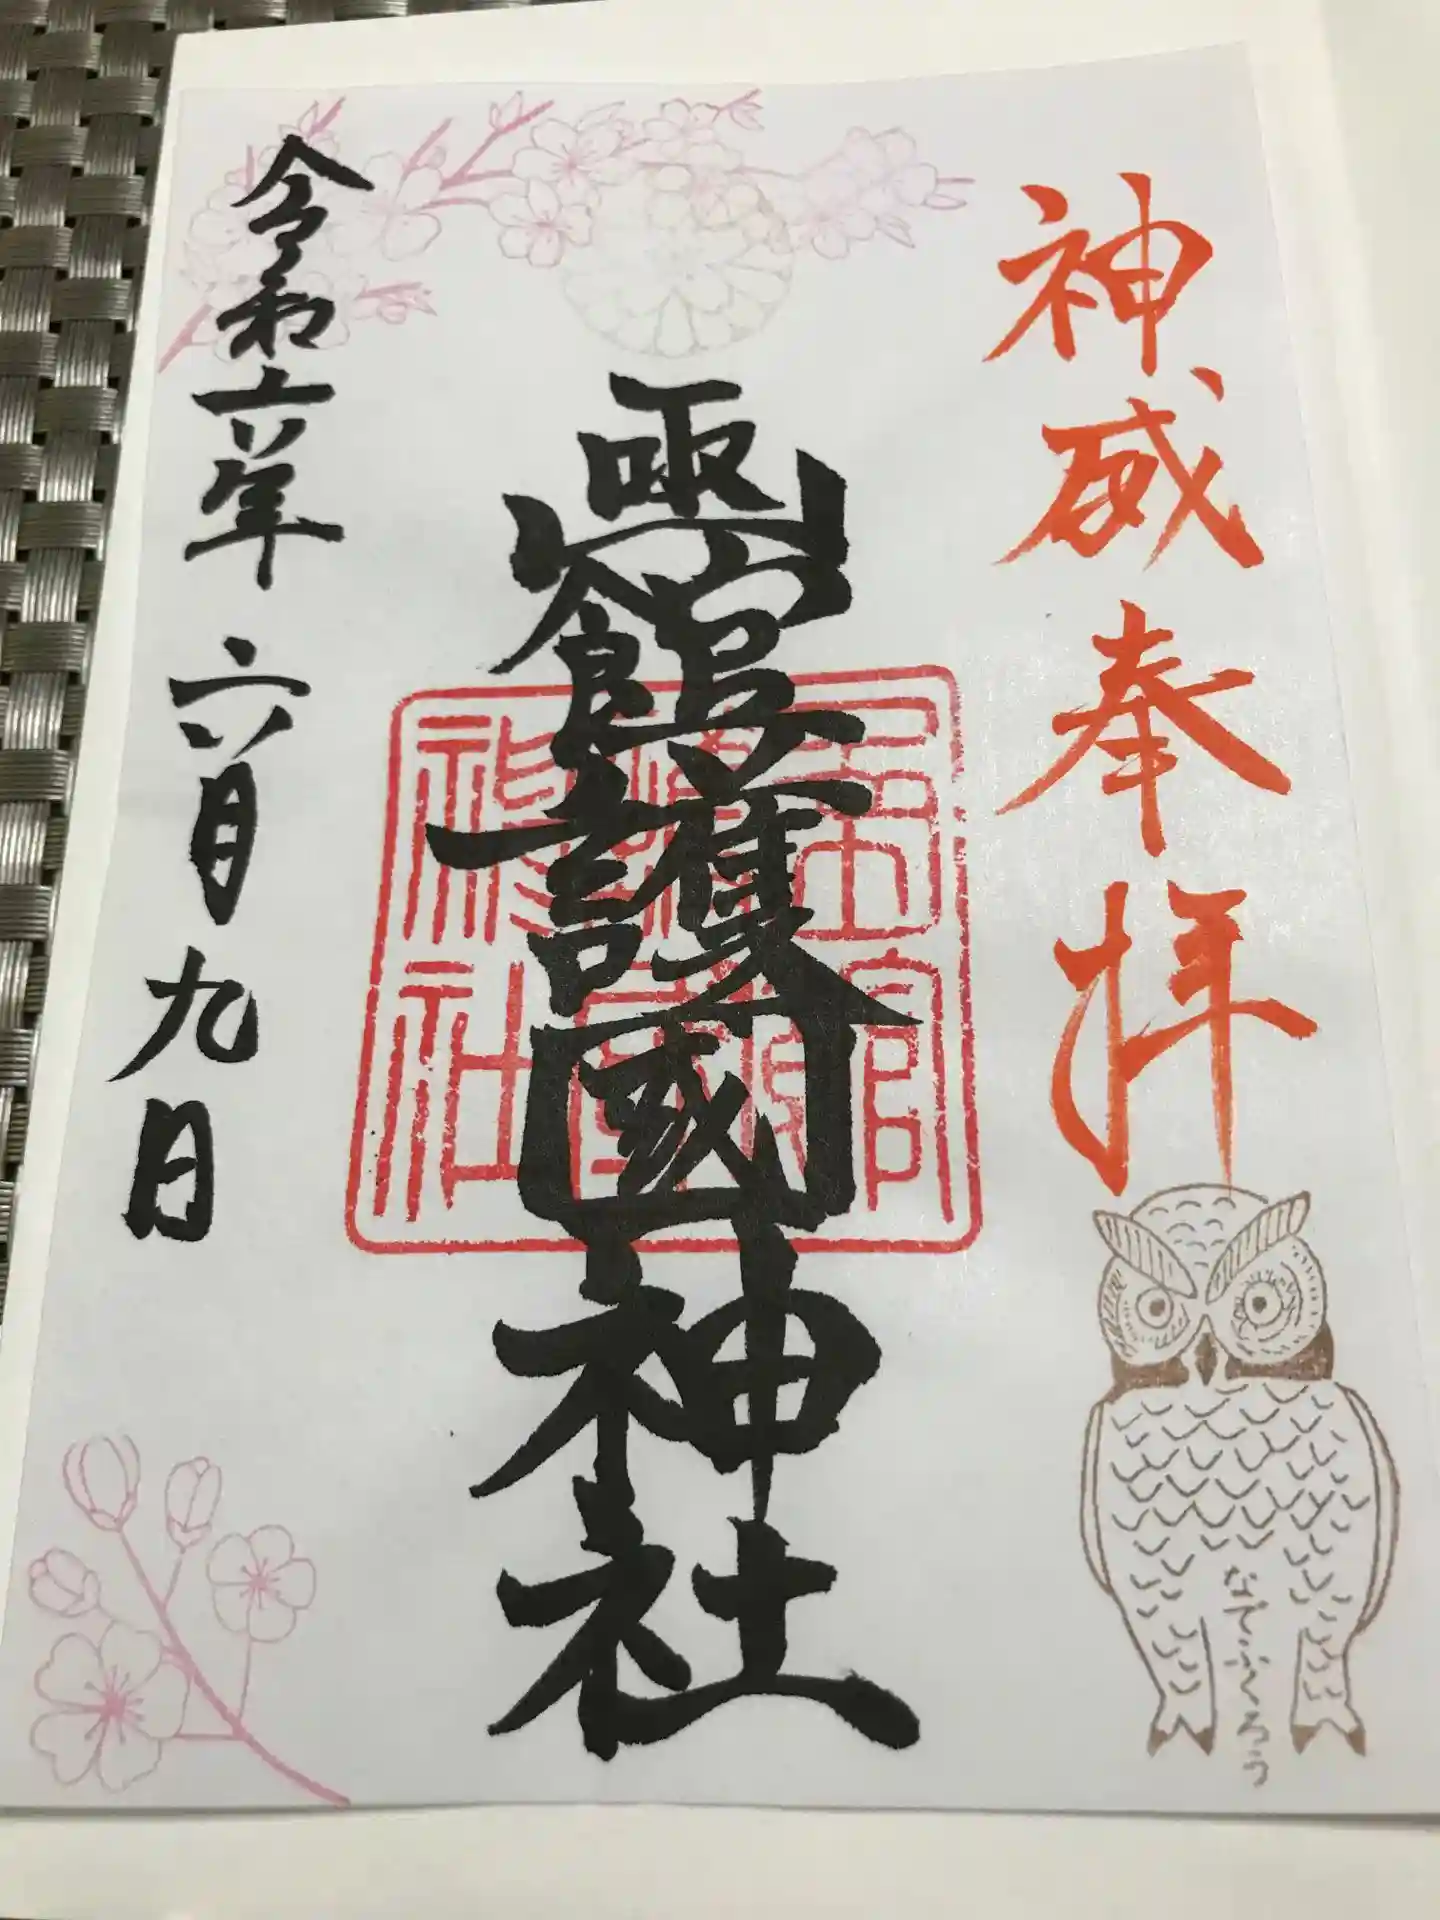 神威奉拝
函館護國神社
令和六年 六月九日
函館護國神社
なでふくろう